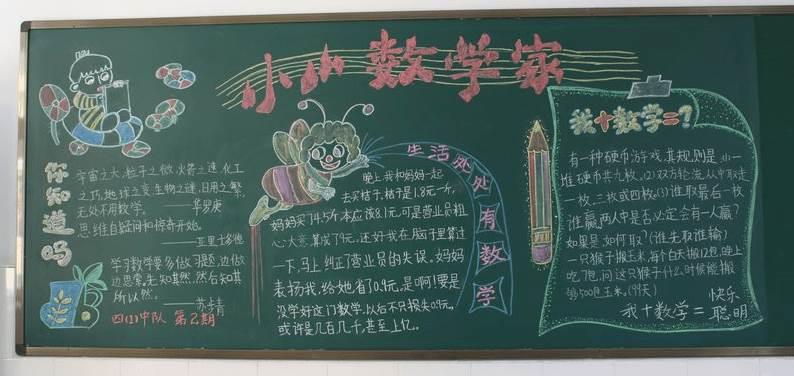 小小数学家
你知道吗
宇宙之大,粒子之微,火箭之速,化工
之巧,地球之变,生物之谜,日用之繁,
无处不用数学。
——华罗庚
思维自疑问和惊奇开始。
——亚里士多德
学习数学要多做习题,边做
边思索。先知其然,然后知其
所以然。
——苏步青
四(1)中队 第2期
生活处处有数学
晚上,我和妈妈一起
去买桔子,桔子是1.8元一斤,
妈妈买了4.5斤本应该8.1元,可是营业员粗
心大意,算成了9元,还好我在脑子里算过
一下,马上纠正了营业员的失误,妈妈
表扬我,给她省了0.9元,是啊!要是
没学好这门数学,以后不只损失0.9元,
或许是几百几千,甚至上亿。
我+数学=?
有一种硬币游戏,其规则是:(1)一
堆硬币共九枚。(2)双方轮流从中取走
一枚、三枚或四枚。(3)谁取最后一枚
谁赢。两人中是否必定会有一人赢?
如果是,如何取?(谁先取谁输)
一只猴子搬玉米,每个白天搬12包,晚上
吃7包,问这只猴子什么时候能搬
够500包玉米。(99天)
我+数学=
快乐
聪明